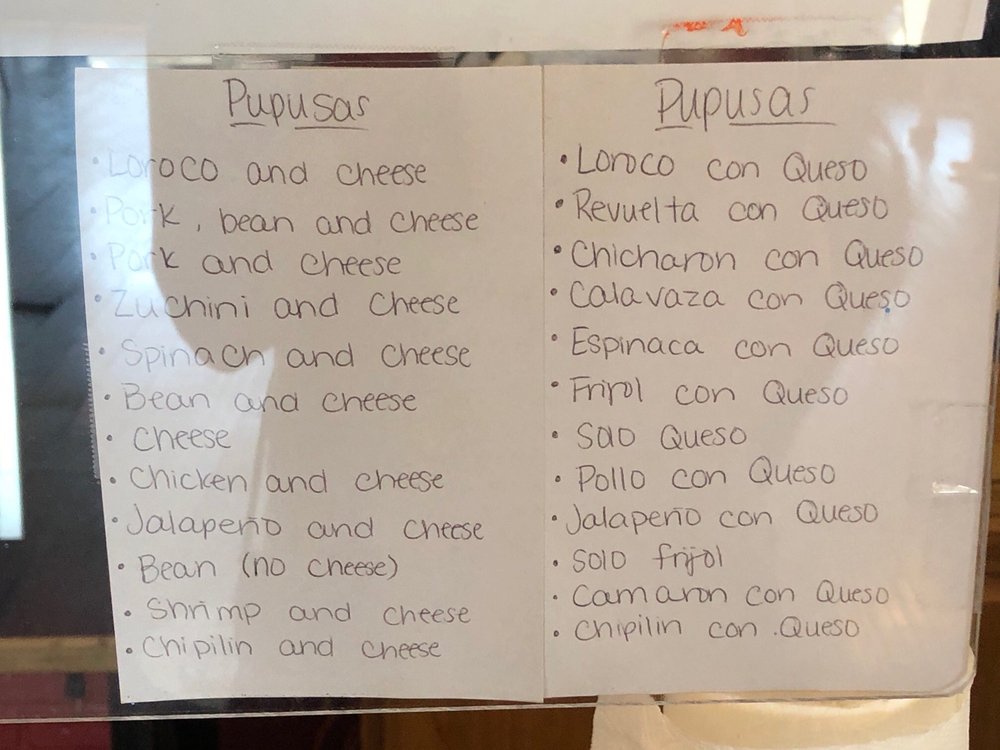 Pupusas
• Loroco and cheese
• Pork, bean and cheese
• Pork and cheese
• Zuchini and cheese
• Spinach and cheese
• Bean and cheese
• cheese
• Chicken and cheese
• Jalapeño and cheese
• Bean (no cheese)
• Shrimp and cheese
• Chipilin and cheese
Pupusas
• Loroco con Queso
• Revuelta con Queso
• Chicharon con Queso
• Calavaza con Queso
• Espinaca con Queso
• Frijol con Queso
• Solo Queso
• Pollo con Queso
• Jalapeño con Queso
• solo frijol
• Camaron con Queso
• Chipilin con .Queso